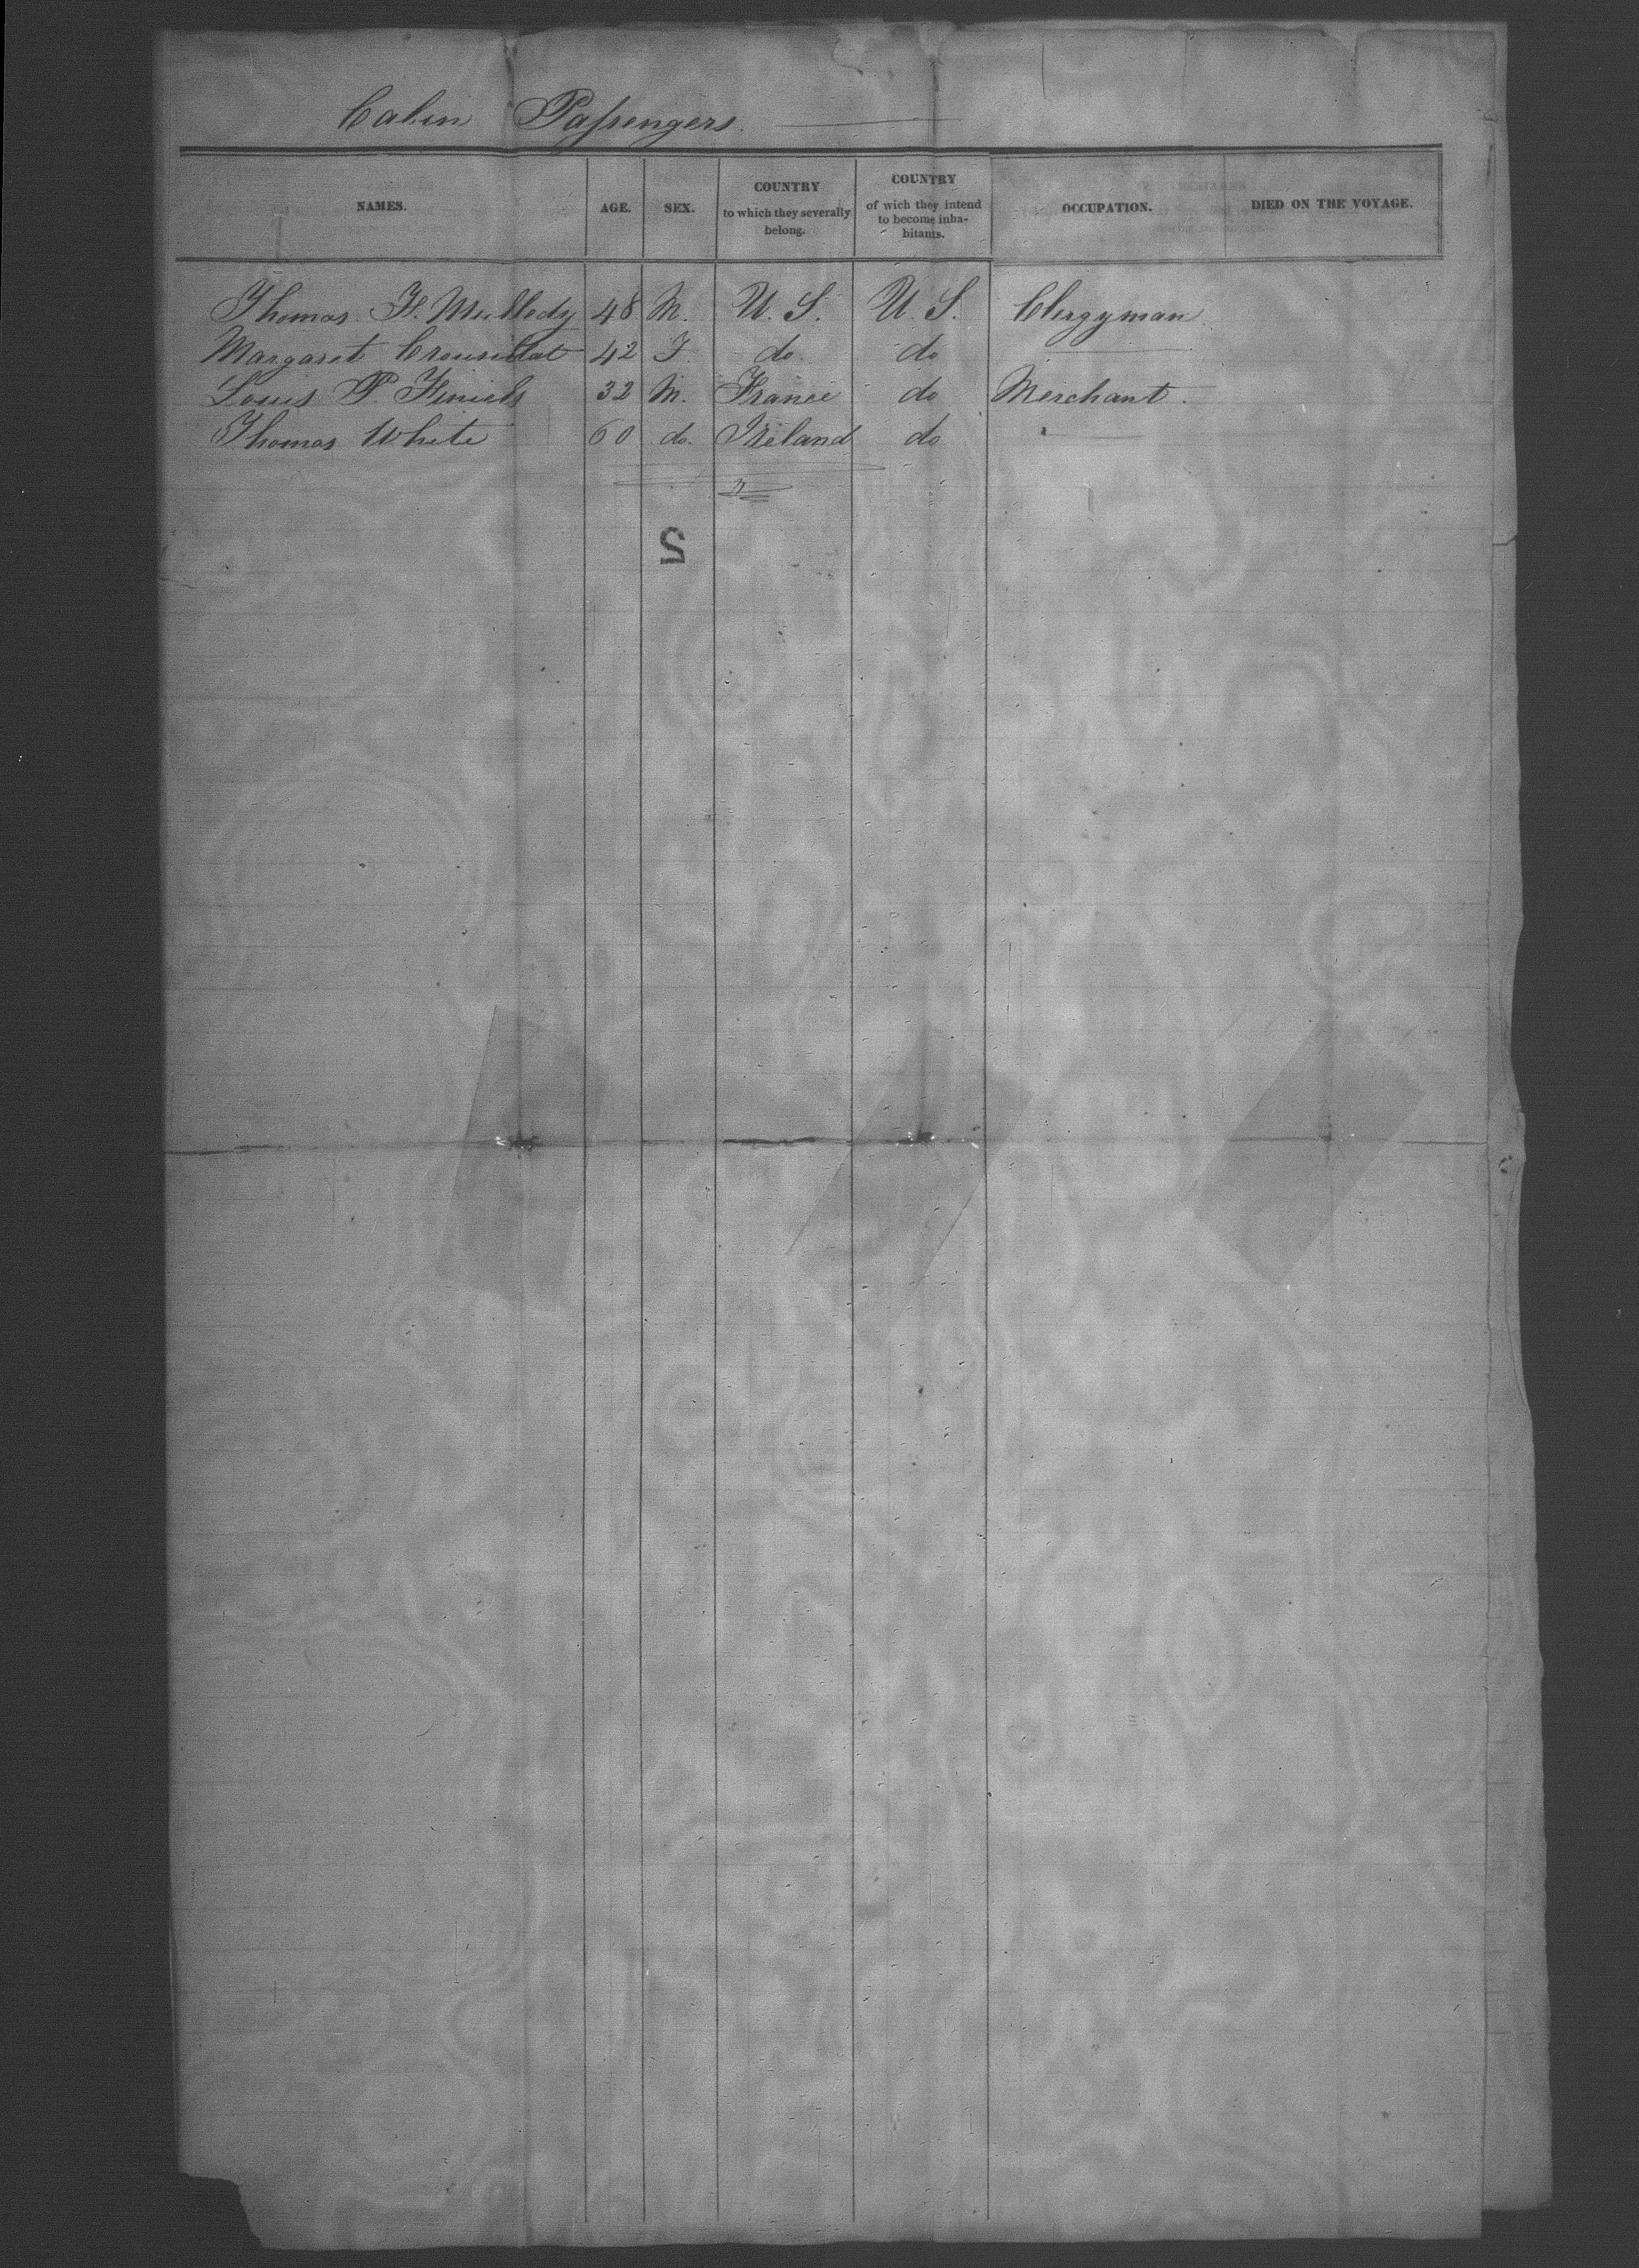 Cabin Passengers.
NAMES. AGE. SEX. COUNTRY to which they severally belong. COUNTRY of wich they intend to become inha-bitants. OCCUPATION. DIED ON THE VOYAGE.
Thomas F. Mulledy 48 M. U. S. U. S. Clergyman
Margaret Crousillat 42 F. do. do
Louis P. Finiels 32 M. France do Merchant.
Thomas White 60 do. Ireland do
2